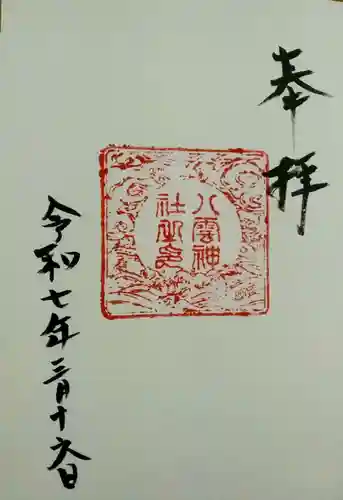 奉拝
八雲神
社之印
令和七年三月十六日